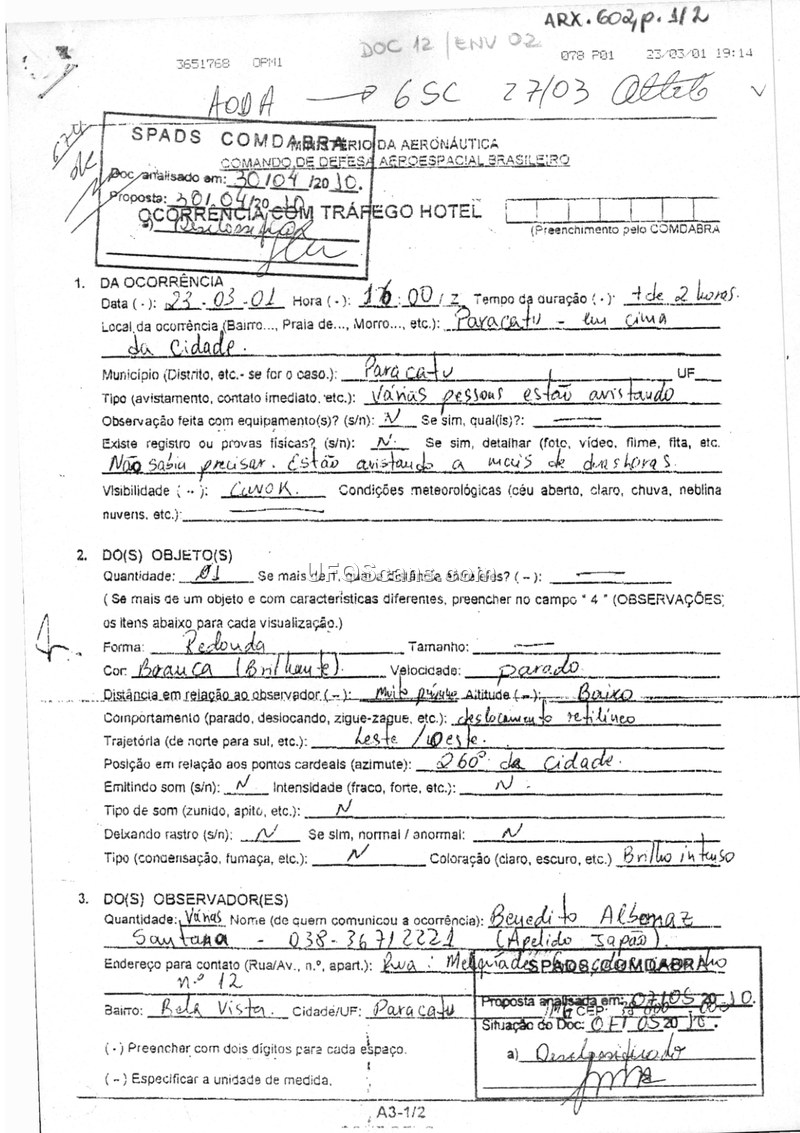 ARX. 602, p. 1/2
DOC 12 / ENV 02
3651768 OPM1 078 P01 23/03/01 19:14
AODA → 6SC 27/03
SPADS COMDABRA
MINISTÉRIO DA AERONÁUTICA
COMANDO DE DEFESA AEROESPACIAL BRASILEIRO
Doc. analisado em: 30/04/2010.
Proposta: 30/04/2010
OCORRÊNCIA COM TRÁFEGO HOTEL
(Preenchimento pelo COMDABRA
a) Desclassificar
1. DA OCORRÊNCIA
Data (·): 23-03-01 Hora (·): 16:00/z Tempo da duração (·): + de 2 horas.
Local da ocorrência (Bairro..., Praia de..., Morro..., etc.): Paracatu - em cima
da cidade.
Município (Distrito, etc.- se for o caso.): Paracatu UF
Tipo (avistamento, contato imediato, etc.): Várias pessoas estão avistando
Observação feita com equipamento(s)? (s/n): N Se sim, qual(is)?:
Existe registro ou provas físicas? (s/n): N. Se sim, detalhar (foto, vídeo, filme, fita, etc.
Não sabia precisar. Estão avistando a mais de duas horas.
Visibilidade (--): CAVOK. Condições meteorológicas (céu aberto, claro, chuva, neblina
nuvens, etc.):
2. DO(S) OBJETO(S)
UFOScans.com
Quantidade: 01 Se mais de 1, qual a distância entre eles? (--):
( Se mais de um objeto e com características diferentes, preencher no campo " 4 " (OBSERVAÇÕES)
os itens abaixo para cada visualização.)
Forma: Redonda Tamanho:
Cor: Branca (Brilhante). Velocidade: parado
Distância em relação ao observador (--): Muito próximo Altitude (--): Baixo
Comportamento (parado, deslocando, zigue-zague, etc.): deslocamento retilíneo
Trajetória (de norte para sul, etc.): Leste / Oeste.
Posição em relação aos pontos cardeais (azimute): 260° da cidade.
Emitindo som (s/n): N Intensidade (fraco, forte, etc.): N.
Tipo de som (zunido, apito, etc.): N
Deixando rastro (s/n): N Se sim, normal / anormal: N
Tipo (condensação, fumaça, etc.): N Coloração (claro, escuro, etc.) Brilho intenso
3. DO(S) OBSERVADOR(ES)
Quantidade: Várias Nome (de quem comunicou a ocorrência): Benedito Albernaz
Santana - 038-36712221 (Apelido Japão).
Endereço para contato (Rua/Av., n.º, apart.): Rua:
n.º 12
SPADS COMDABRA
Bairro: Bela Vista. Cidade/UF: Paracatu /MG CEP:
Proposta analisada em: 07/05/2010.
Situação do Doc: 07/05/2010.
a) Desclassificado
(·) Preencher com dois dígitos para cada espaço.
(--) Especificar a unidade de medida.
A3-1/2